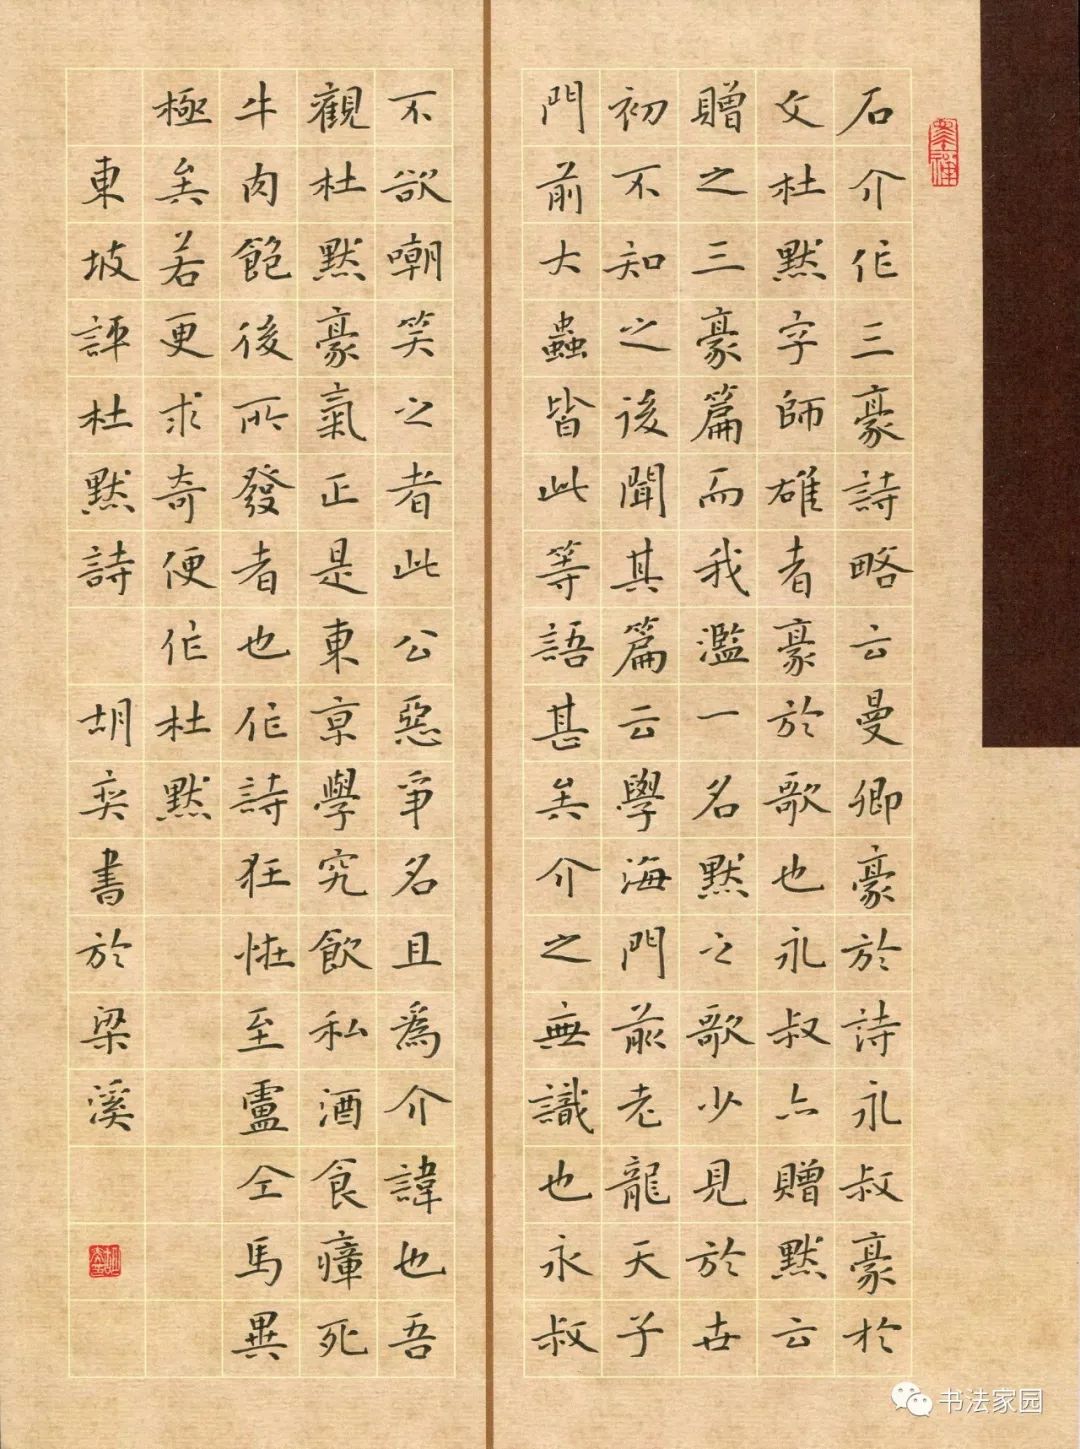 石介作三豪詩略云曼卿豪於詩永叔豪於
文杜默字師雄者豪於歌也永叔亦贈默云
贈之三豪篇而我濫一名默之歌少見於世
初不知之後聞其篇云學海門前老龍天子
門前大蟲皆此等語甚矣介之無識也永叔
不欲嘲笑之者此公惡爭名且為介諱也吾
觀杜默豪氣正是東京學究飲私酒食瘴死
牛肉飽後所發者也作詩狂怪至盧仝馬異
極矣若更求奇便作杜默
東坡評杜默詩 胡奕書於梁溪
书法家园